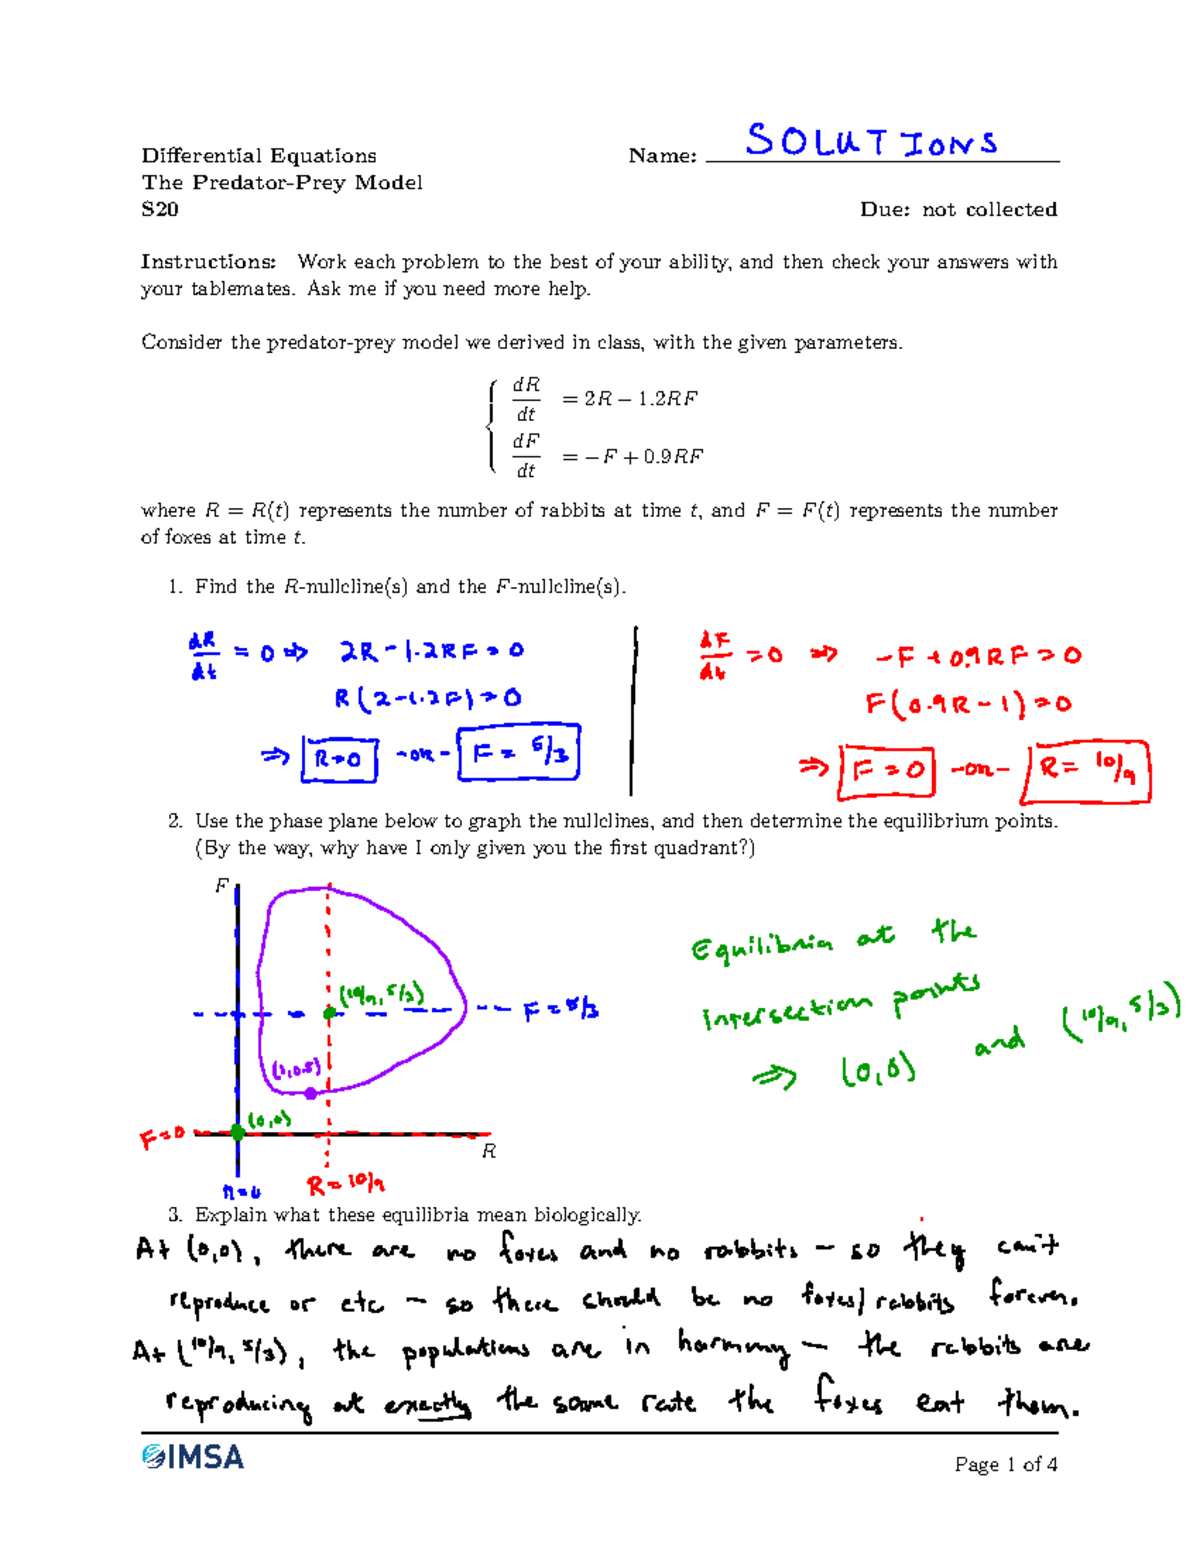 Differential Equations Name: SOLUTIONS
The Predator-Prey Model
S20 Due: not collected
Instructions: Work each problem to the best of your ability, and then check your answers with
your tablemates. Ask me if you need more help.
Consider the predator-prey model we derived in class, with the given parameters.
dR/dt = 2R − 1.2RF
dF/dt = −F + 0.9RF
where R = R(t) represents the number of rabbits at time t, and F = F(t) represents the number
of foxes at time t.
1. Find the R-nullcline(s) and the F-nullcline(s).
dR/dt = 0 ⇒ 2R − 1.2RF = 0
R(2−1.2F) = 0
⇒ R=0 -or- F = 5/3
dF/dt = 0 ⇒ −F + 0.9RF = 0
F(0.9R − 1) = 0
⇒ F = 0 -or- R = 10/9
2. Use the phase plane below to graph the nullclines, and then determine the equilibrium points.
(By the way, why have I only given you the first quadrant?)
F
(10/9, 5/3)
F = 5/3
(1,0.5)
(0,0)
F=0
R
R=0
R = 10/9
Equilibria at the
intersection points
⇒ (0,0) and (10/9, 5/3)
3. Explain what these equilibria mean biologically.
At (0,0), there are no foxes and no rabbits – so they can't
reproduce or etc – so there should be no foxes/rabbits forever.
At (10/9, 5/3), the populations are in harmony – the rabbits are
reproducing at exactly the same rate the foxes eat them.
IMSA
Page 1 of 4